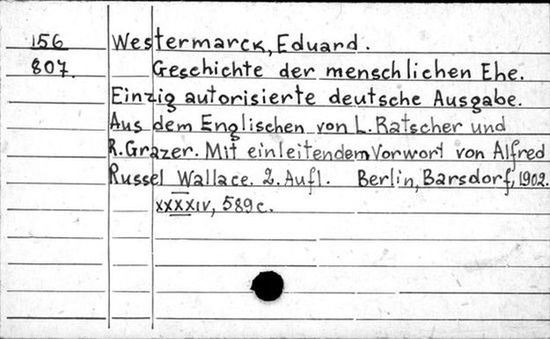 156 Westermarck, Eduard.
807. Geschichte der menschlichen Ehe.
Einzig autorisierte deutsche Ausgabe.
Aus dem Englischen von L. Ratscher und
R. Grazer. Mit einleitendem Vorwort von Alfred
Russel Wallace. 2. Aufl. Berlin, Barsdorf, 1902.
XXXXIV, 589 c.